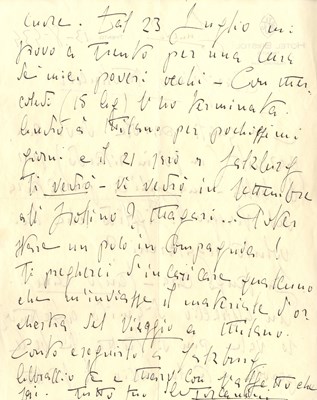 cuore. Dal 23 Luglio mi
trovo a Trento per una cura
dei miei poveri occhi - Con mer-
coledì (15 lug) l'ho terminata.
Andrò a Milano per pochissimi
giorni e il 21 sarò a Salzburg
Ti vedrò - vi vedrò in settembre
all' ? Magari... Poter
stare un po' in compagnia!
Ti pregherei d'incaricare qualcuno
che m'inviasse il materiale d'or
chestra del Viaggio a Milano.
Conto eseguirlo a Salzburg
abbraccio te e con l'affetto che
sai. Tutto tuo